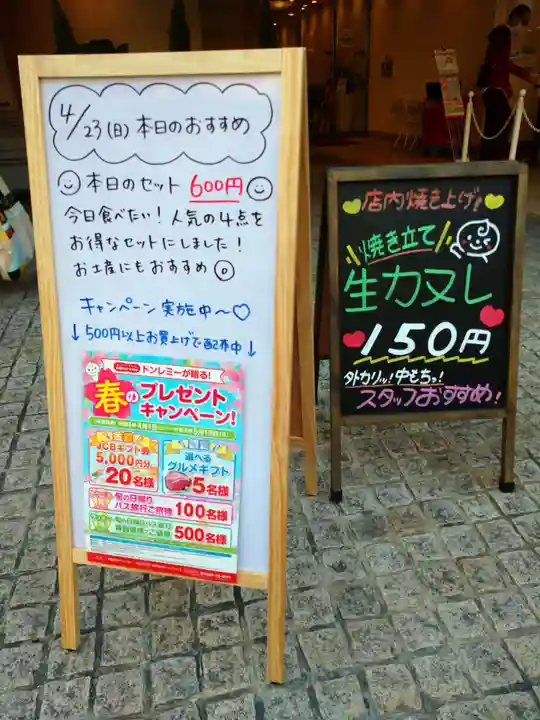 4/23(日)本日のおすすめ
本日のセット 600円
今日食べたい!人気の4点を
お得なセットにしました!
お土産にもおすすめ
キャンペーン実施中~♡
↓500円以上お買上げで配布中↓
ドンレミーが贈る!
春のプレゼント
キャンペーン!
JCBギフト券
5,000円分
20名様
選べる
グルメギフト
5名様
旬の日帰り
バス旅行ご招待
100名様
500名様
店内焼き上げ!
焼き立て
生カヌレ
150円
外カリッ!中もちっ!
スタッフおすすめ!